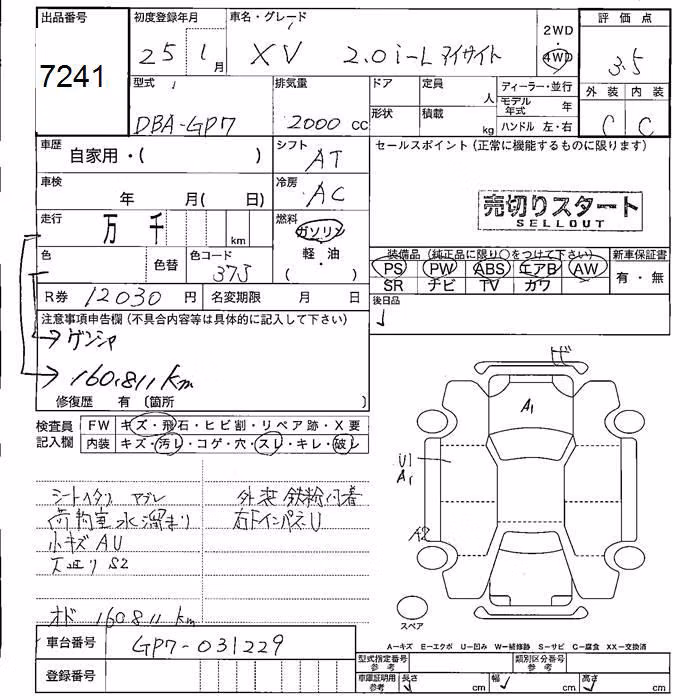 出品番号 初度登録年月 車名・グレード 2WD 評価点
7241 25 1月 XV 2.0i-L アイサイト 4WD 3.5
型式 排気量 ドア 定員 人 ディーラー・並行 外装 内装
DBA-GP7 2000 cc 形状 積載 kg モデル年式 年 C C
ハンドル 左・右
車歴 自家用・( ) シフト AT セールスポイント(正常に機能するものに限ります)
車検 年 月( 日) 冷房 AC
売切りスタート
SELLOUT
走行 万 千 km 燃料 ガソリン
軽・油
( )
色 色替 色コード 37J 装備品(純正品に限り○をつけて下さい) 新車保証書
PS PW ABS エアB AW 有・無
SR ナビ TV カワ
R券 12030 円 名変期限 月 日 後日品
注意事項申告欄(不具合内容等は具体的に記入して下さい)
ゲンシャ
160,811km
修復歴 有 (箇所 )
検査員記入欄 FW キズ・飛石・ヒビ割・リペア跡・X要
内装 キズ・汚レ・コゲ・穴・スレ・キレ・破レ
A1
U1
A1
A2
シートヘタリ ヤブレ 外装 鉄粉付着
荷物室水溜まり 右ドインパネU
小キズ AU
S2
オド 160811 km
スペア
車台番号 GP7-031229
A−キズ E−エクボ U−凹み W−補修跡 S−サビ C−腐食 XX−交換済
登録番号 型式指定番号 参考 類別区分番号 参考
車庫証明用 参考 長さ cm 幅 cm 高さ cm